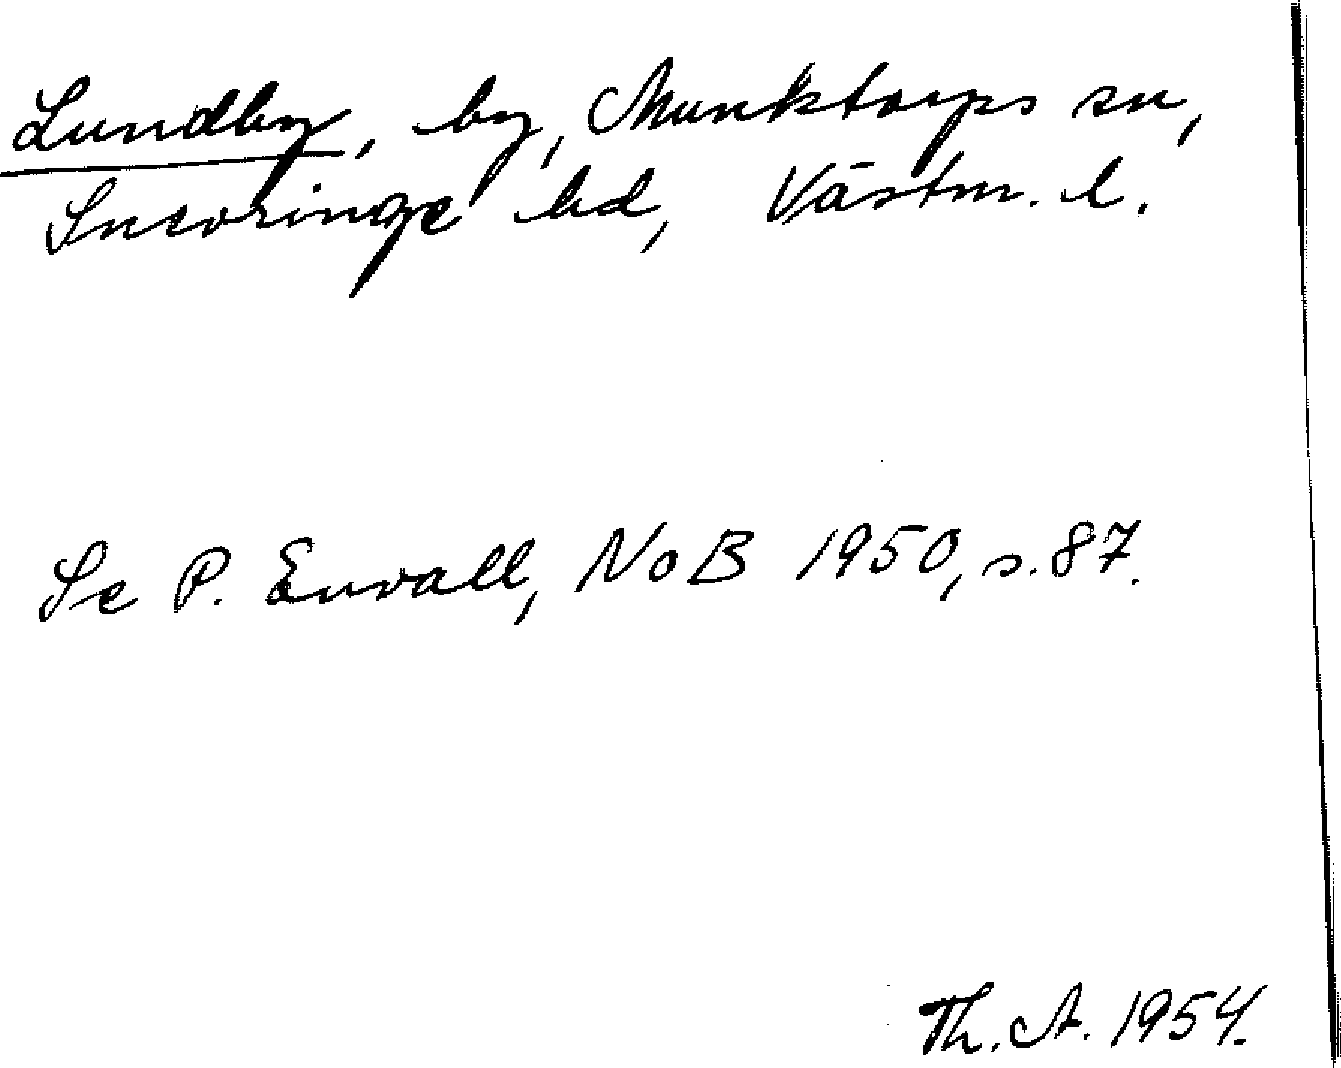 Lundby, by, Munktorps sn,
Snevringe hd, Västm. l.
Se P. Envall, NoB 1950, s. 87.
Th. A. 1954.